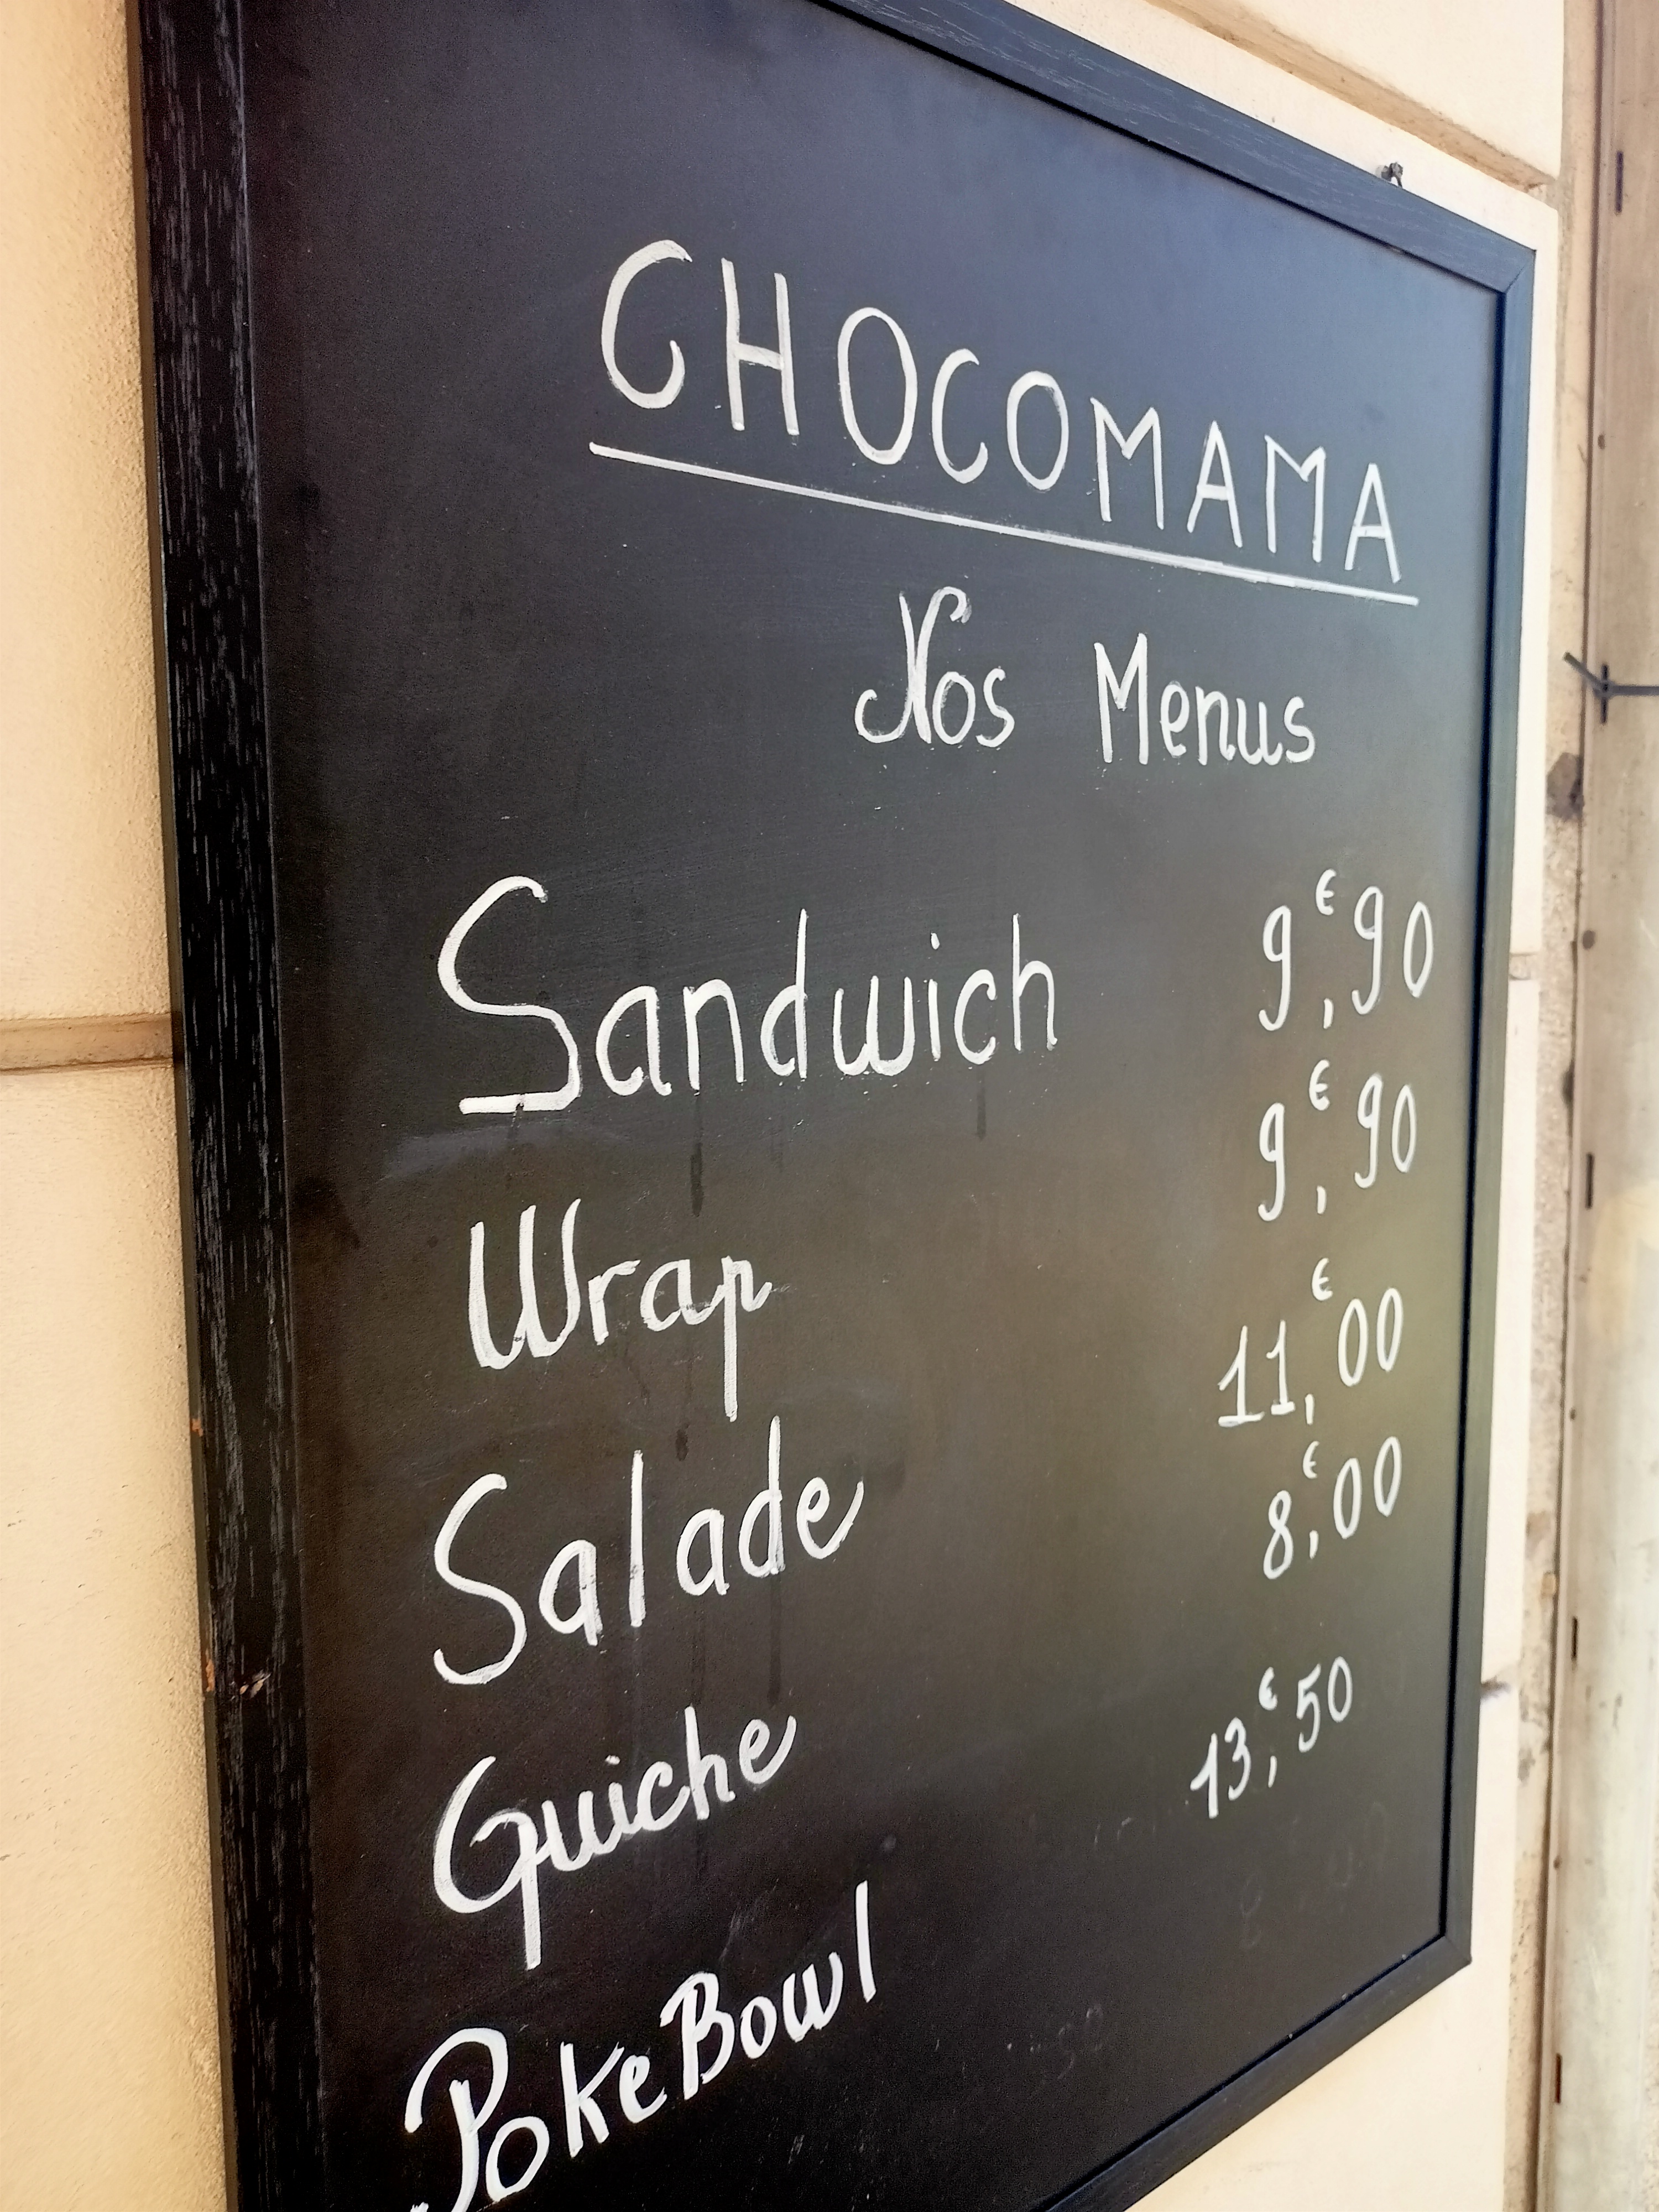 CHOCOMAMA
Nos Menus
Sandwich 9,€90
Wrap 9,€90
Salade 11,€00
Quiche 8,€00
PokeBowl 13,€50